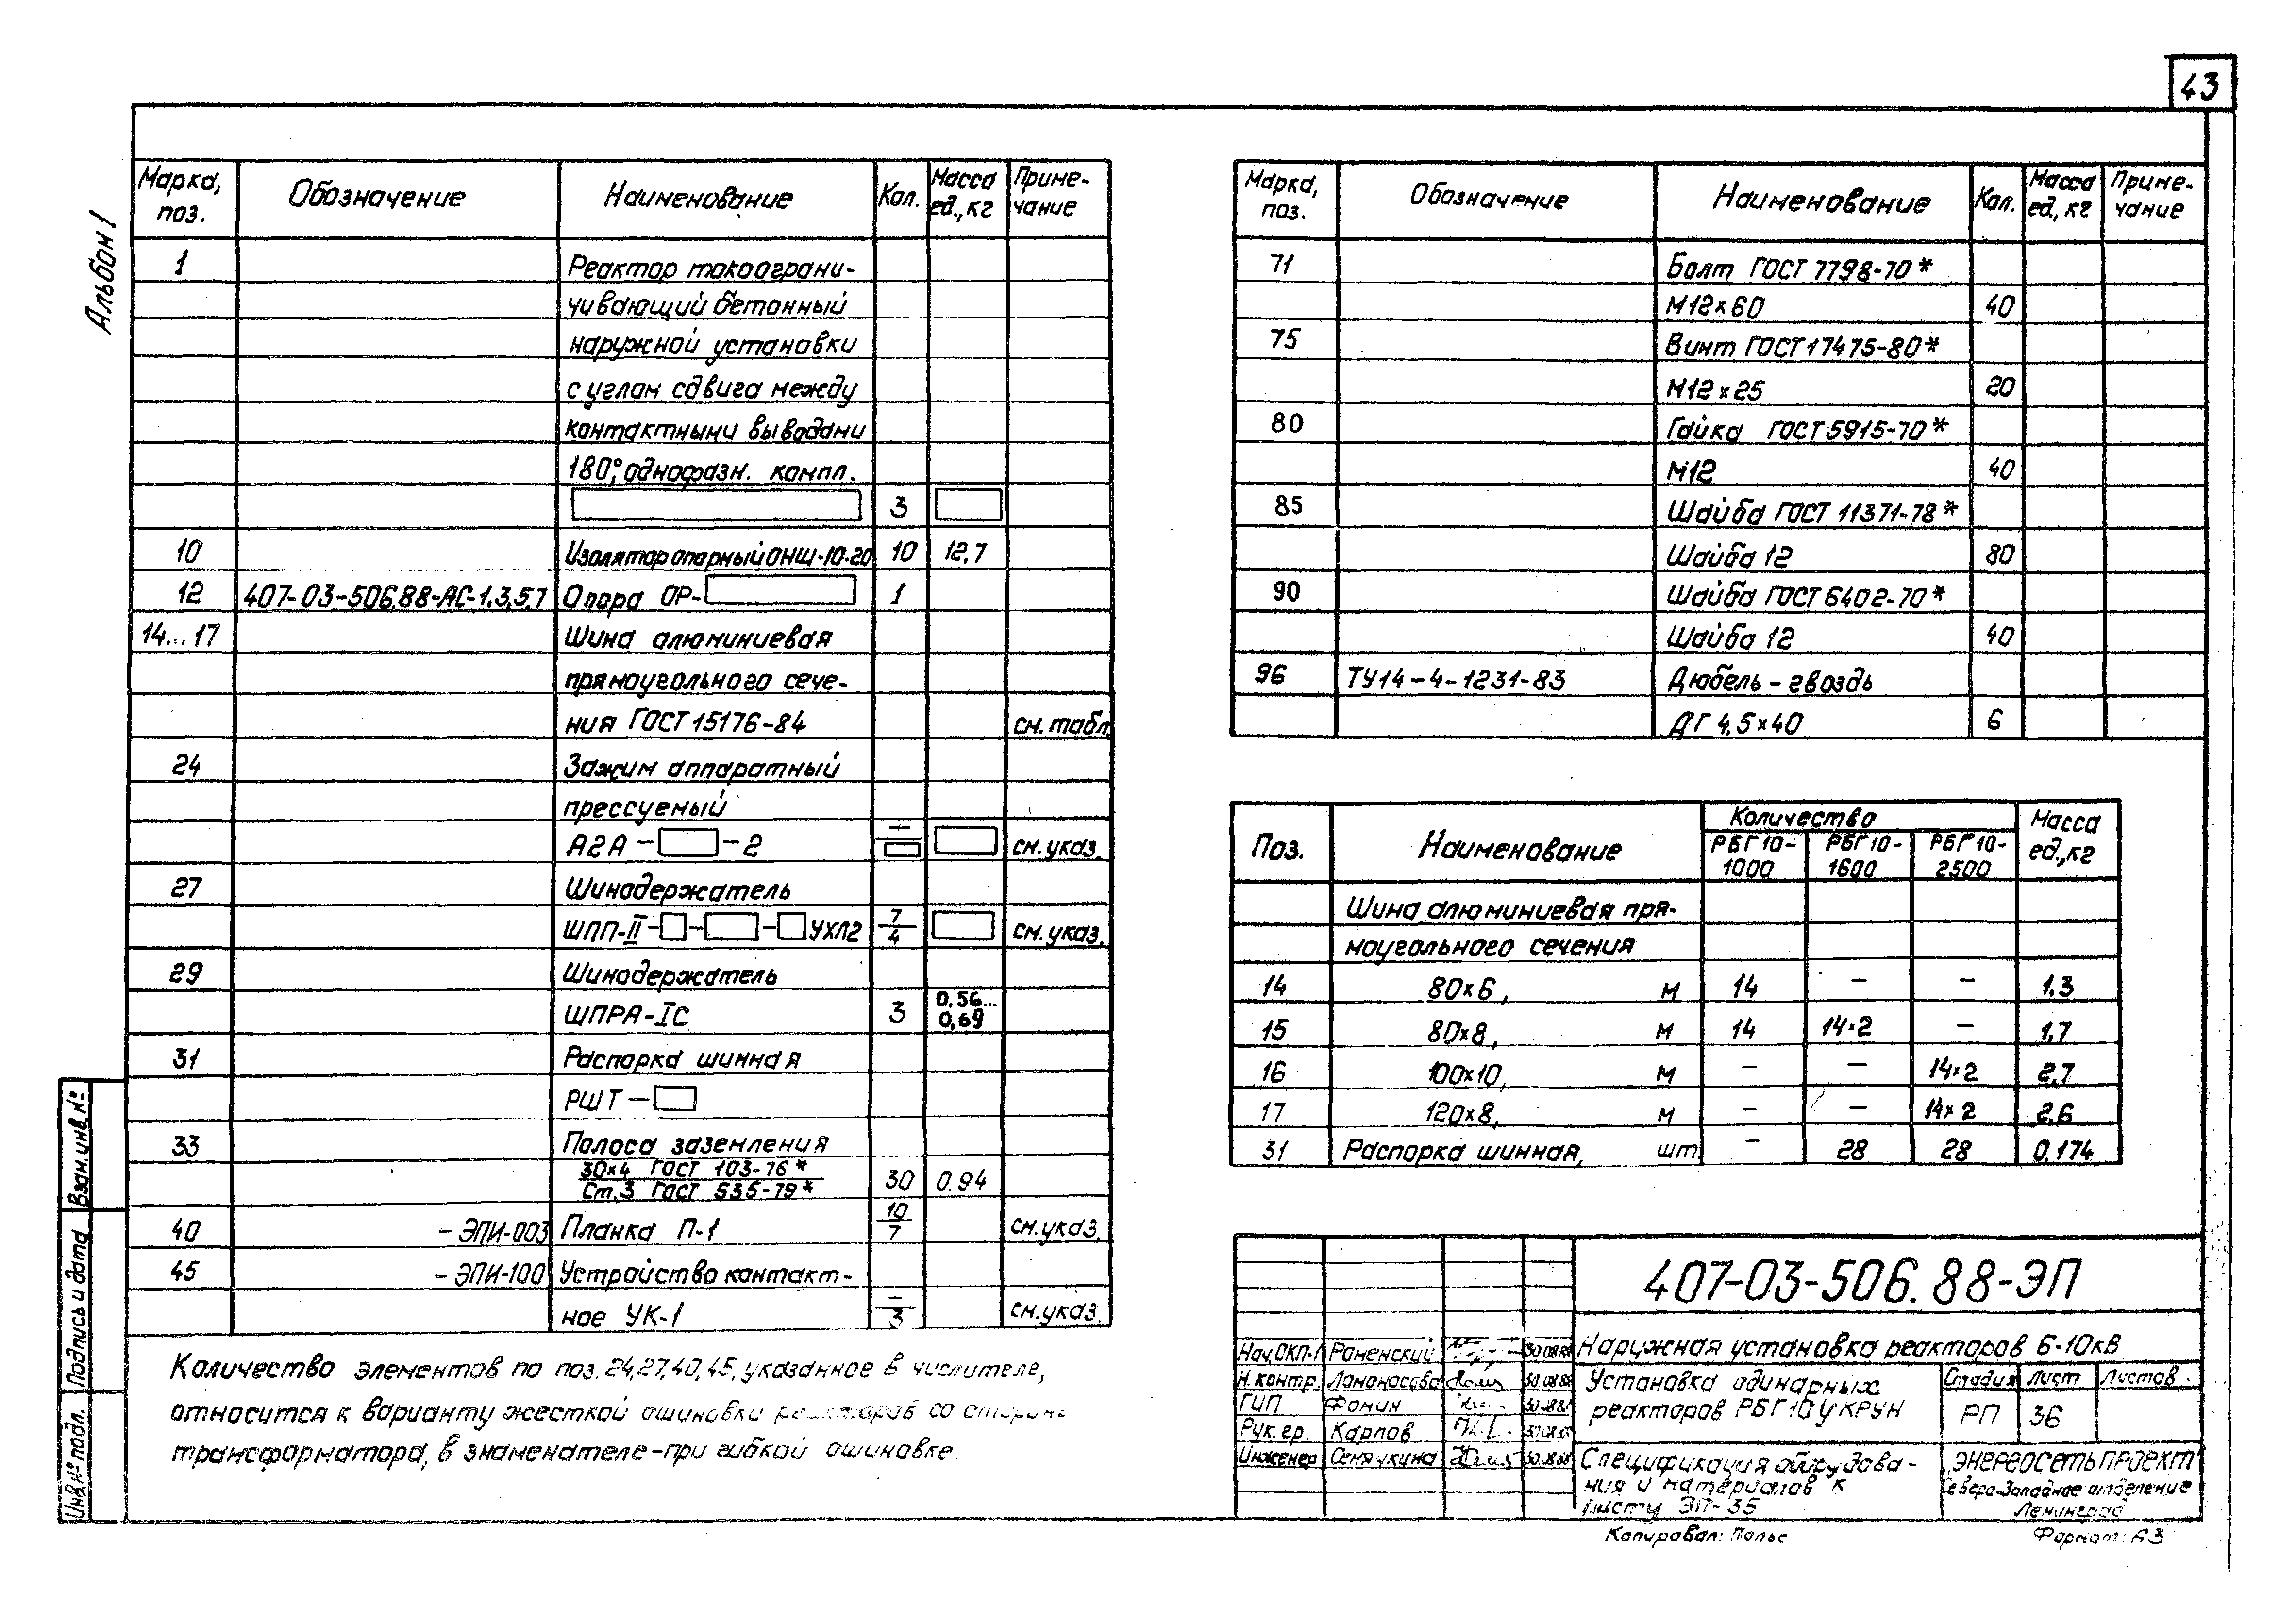 43
Альбом 1
Марка, поз. Обозначение Наименование Кол. Масса ед., кг Приме-чание
1 Реактор токоограни-
чивающий бетонный
наружной установки
с углом сдвига между
контактными выводами
180°, однофазн. компл.
3
10 Изолятор опорный ОНШ-10-20 10 12.7
12 407-03-506.88-АС-1,3,5,7 Опора ОР- 1
14...17 Шина алюминиевая
прямоугольного сече-
ния ГОСТ 15176-84 см. табл.
24 Зажим аппаратный
прессуемый
А2А - - 2 — см. указ.
27 Шинодержатель
ШПП-II- - - УХЛ2 7/4 см. указ.
29 Шинодержатель
ШПРА-IС 3 0.56... 0,69
31 Распорка шинная
РШТ -
33 Полоса заземления
30×4 ГОСТ 103-76*
Ст.3 ГОСТ 535-79* 30 0.94
40 - ЭПИ-003 Планка П-1 10/7 см. указ.
45 - ЭПИ-100 Устройство контакт-
ное УК-1 -/3 см. указ.
Количество элементов по поз. 24,27,40,45, указанное в числителе,
относится к варианту жесткой ошиновки реакторов со стороны
трансформатора, в знаменателе - при гибкой ошиновке.
Марка, поз. Обозначение Наименование Кол. Масса ед., кг Приме-чание
71 Болт ГОСТ 7798-70*
М12×60 40
75 Винт ГОСТ 17475-80*
М12×25 20
80 Гайка ГОСТ 5915-70*
М12 40
85 Шайба ГОСТ 11371-78*
Шайба 12 80
90 Шайба ГОСТ 6402-70*
Шайба 12 40
96 ТУ14-4-1231-83 Дюбель-гвоздь
ДГ 4,5×40 6
Поз. Наименование Количество Масса ед., кг
РБГ 10-1000 РБГ 10-1600 РБГ 10-2500
Шина алюминиевая пря-
моугольного сечения
14 80×6, м 14 – – 1.3
15 80×8, м 14 14×2 – 1.7
16 100×10, м – – 14×2 2.7
17 120×8, м – – 14×2 2.6
31 Распорка шинная, шт. – 28 28 0.174
407-03-506.88-ЭП
Нач. ОКП-1 Роменский 30.08.88 Наружная установка реакторов 6-10кВ
Н.контр. Ломоносова 30.08.88
ГИП Фомин 30.08.88
Рук. гр. Карпов 30.08.88
Инженер Семячкина 30.08.88
Установка одинарных
реакторов РБГ 10 у КРУН
Стадия Лист Листов
РП 36
Спецификация оборудова-
ния и материалов к
листу ЭП-35
ЭНЕРГОСЕТЬПРОЕКТ
Северо-Западное отделение
Ленинград
Копировал: Польс
Формат: А3
Взам.инв.№
Подпись и дата
Инв.№ подл.